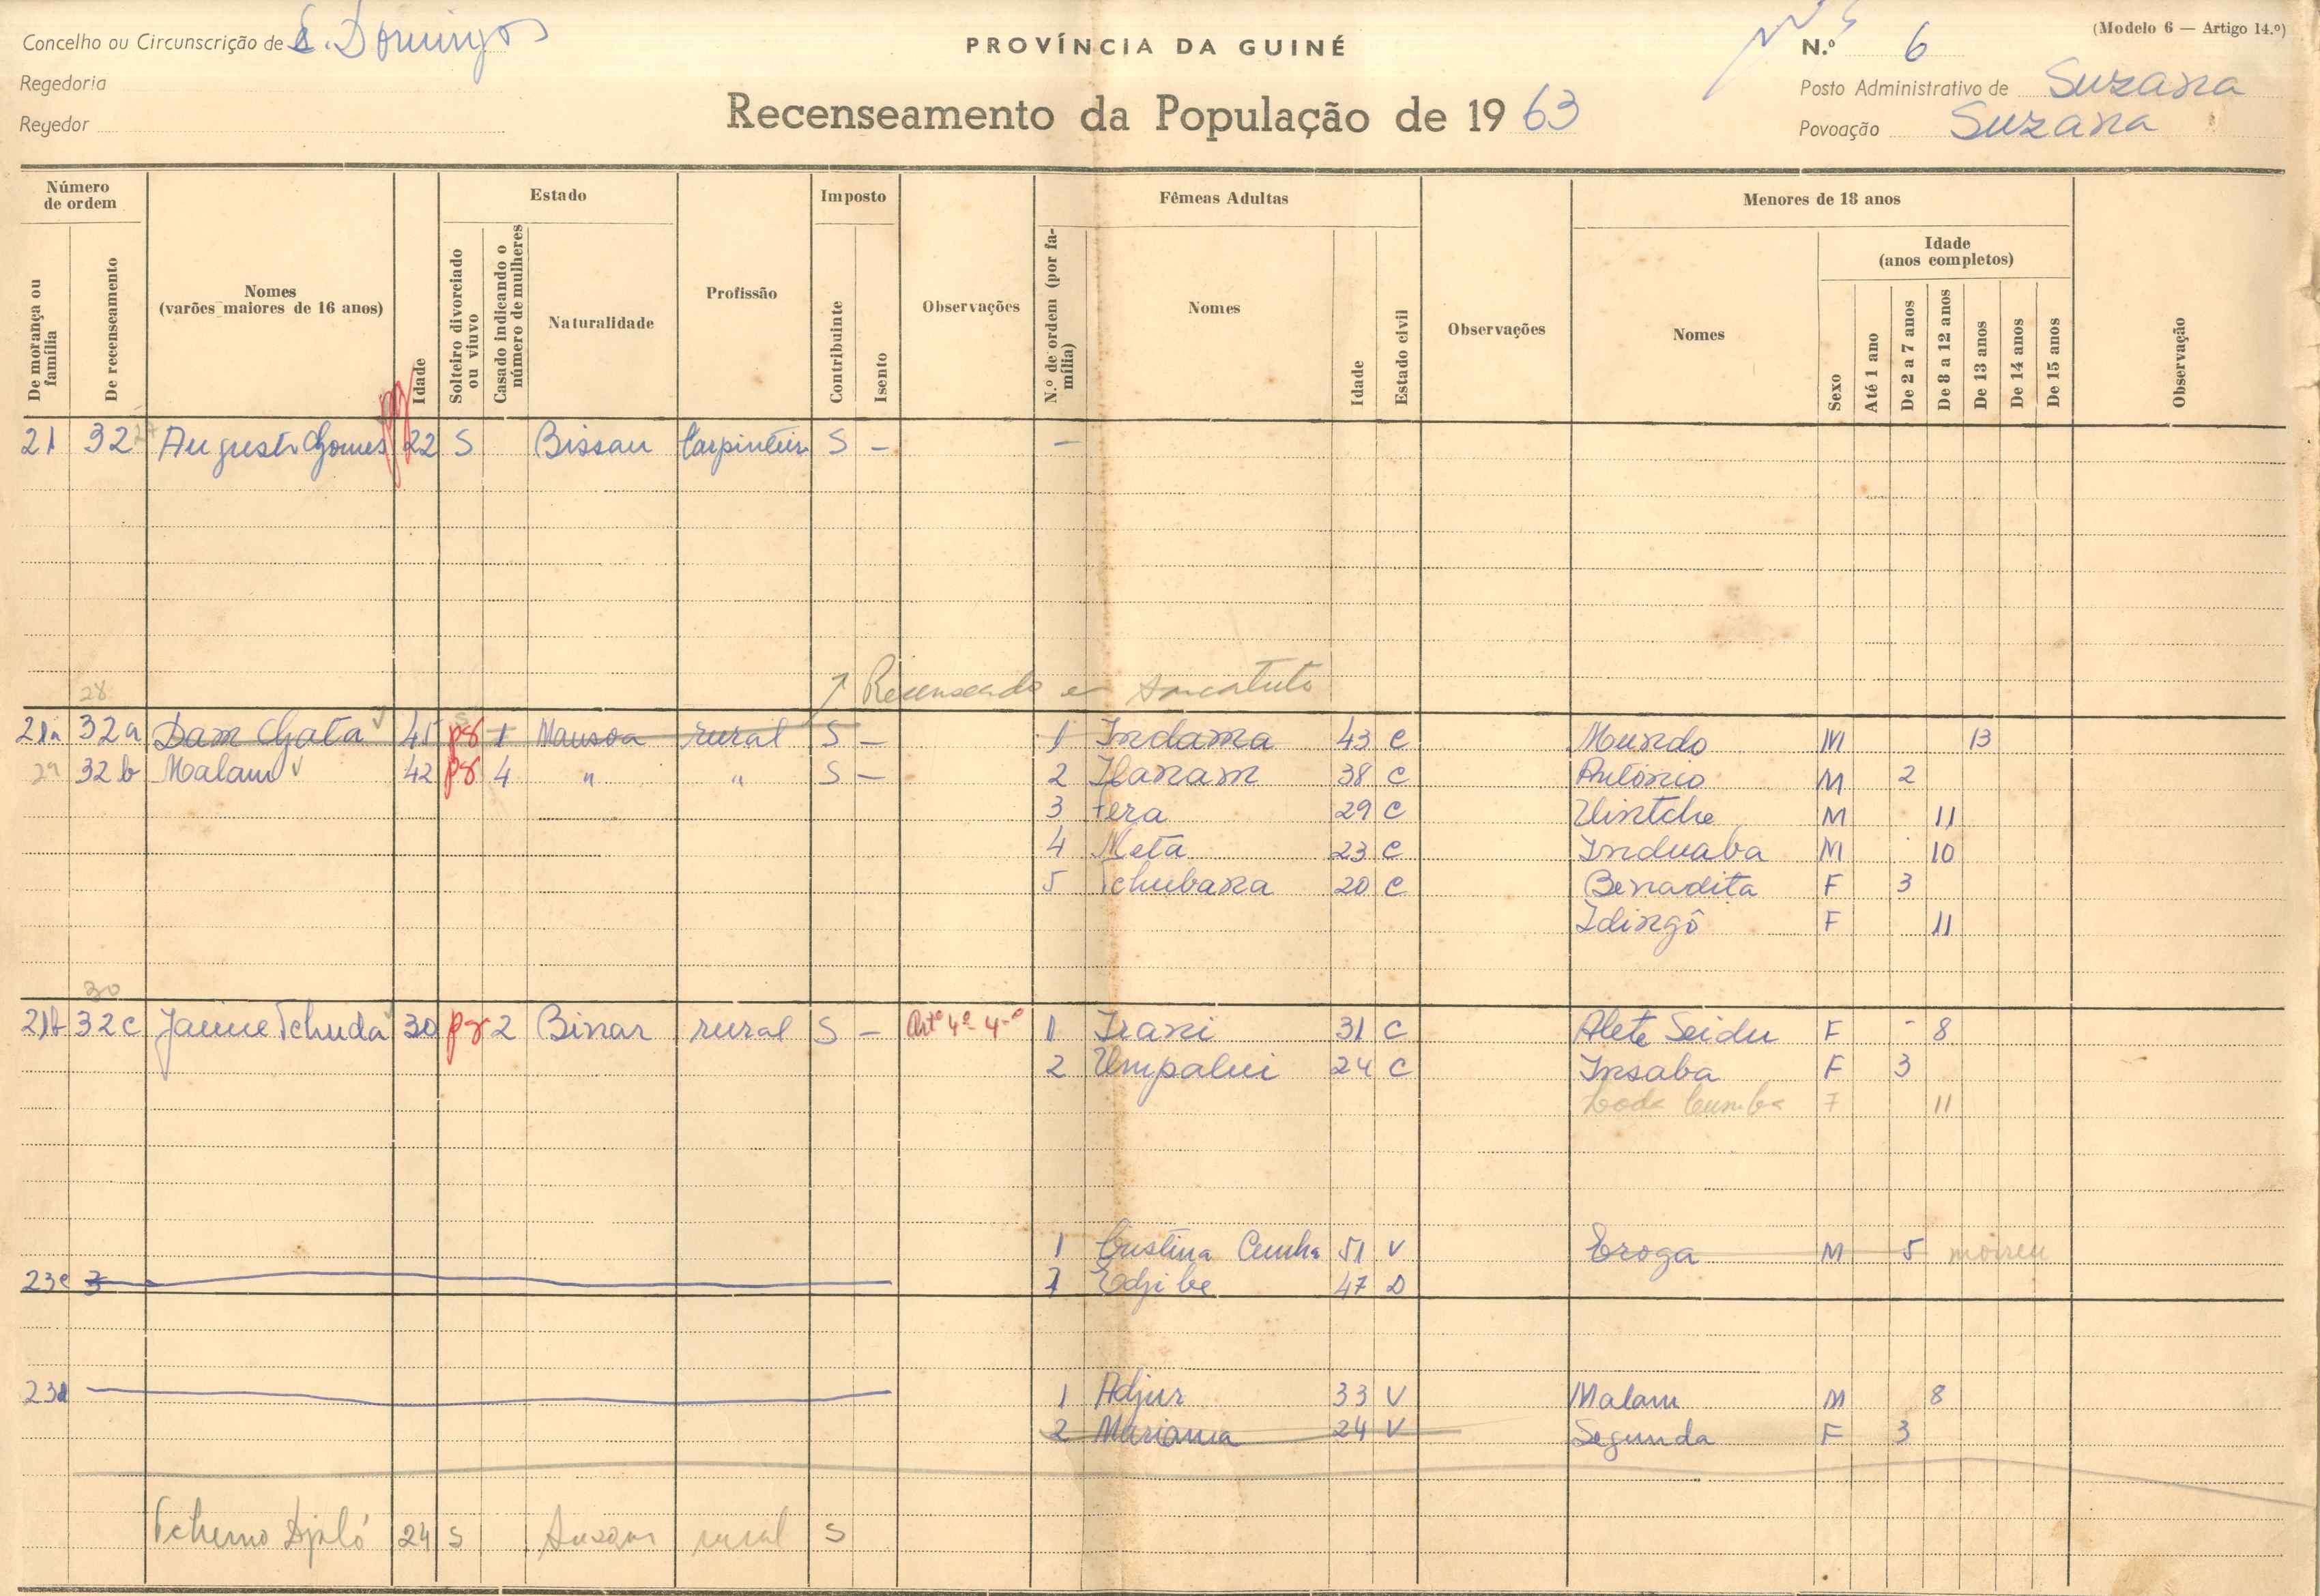 Concelho ou Circunscrição de S. Domingos
PROVÍNCIA DA GUINÉ
N.º 6
(Modelo 6 — Artigo 14.º)
Regedoria
Recenseamento da População de 1963
Posto Administrativo de Suzana
Regedor
Povoação Suzana
Número de ordem
Estado
Imposto
Fêmeas Adultas
Menores de 18 anos
De morança ou família
De recenseamento
Nomes (varões maiores de 16 anos)
Idade
Solteiro divorciado ou viuvo
Casado indicando o número de mulheres
Naturalidade
Profissão
Contribuinte
Isento
Observações
N.º de ordem (por família)
Nomes
Idade
Estado civil
Observações
Nomes
Sexo
Idade (anos completos)
Até 1 ano
De 2 a 7 anos
De 8 a 12 anos
De 13 anos
De 14 anos
De 15 anos
Observação
21 32 Augusto Gomes 22 S Bissau Carpinteiro S - -
Recenseado e
28
21a 32a Dam Gata 45 pg 1 Mansoa rural S - 1 Indama 43 C Mundo M 13
29 32b Malam 42 pg 4 " " S - 2 Ilanam 38 C António M 2
3 Fera 29 C Uintche M 11
4 Meta 23 C Induaba M 10
5 Tchubana 20 C Benadita F 3
Idingô F 11
30
21b 32c Jaime Tchuda 30 pg 2 Binar rural S - Artº 4º 4-º 1 Irani 31 C Alete Seidu F - 8
2 Umpalui 24 C Insaba F 3
F 11
1 Cristina Cunha 51 V Eroga M 5 morreu
23c 3 1 Edjibe 47 D
23d 1 Adjur 33 V Malam M 8
2 Mariama 24 V Segunda F 3
Tcherno Djaló 24 S Suzana rural S